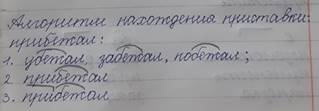 Алгоритм нахождения приставки:
прибежал:
1. убежал, забежал, побежал;
2. прибежал
3. прибежал